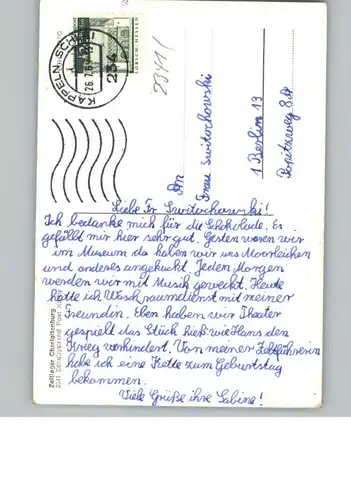 KAPPELN, SCHLEI
26.7.69
234
LORSCH/HESSEN
2341/
An
Frau Switochowski
1 Berlin 13
Popitzweg 8a
Liebe Fr Switochowski!
Ich bedanke mich für die Schokolade. Es
gefällt mir hier sehr gut. Gestern waren wir
im Museum da haben wir uns Moorleichen
und anderes angekuckt. Jeden Morgen
werden wir mit Musik geweckt. Heute
hatte ich Waschraumdienst mit meiner
Freundin. Eben haben wir Theater
gespielt das Stück hieß: wie Hans den
Krieg verhindert. Von meiner Zeltführerin
habe ich eine Kette zum Geburtstag
bekommen.
Viele Grüße ihre Sabine!
Zeltlager Charlottenburg
2341